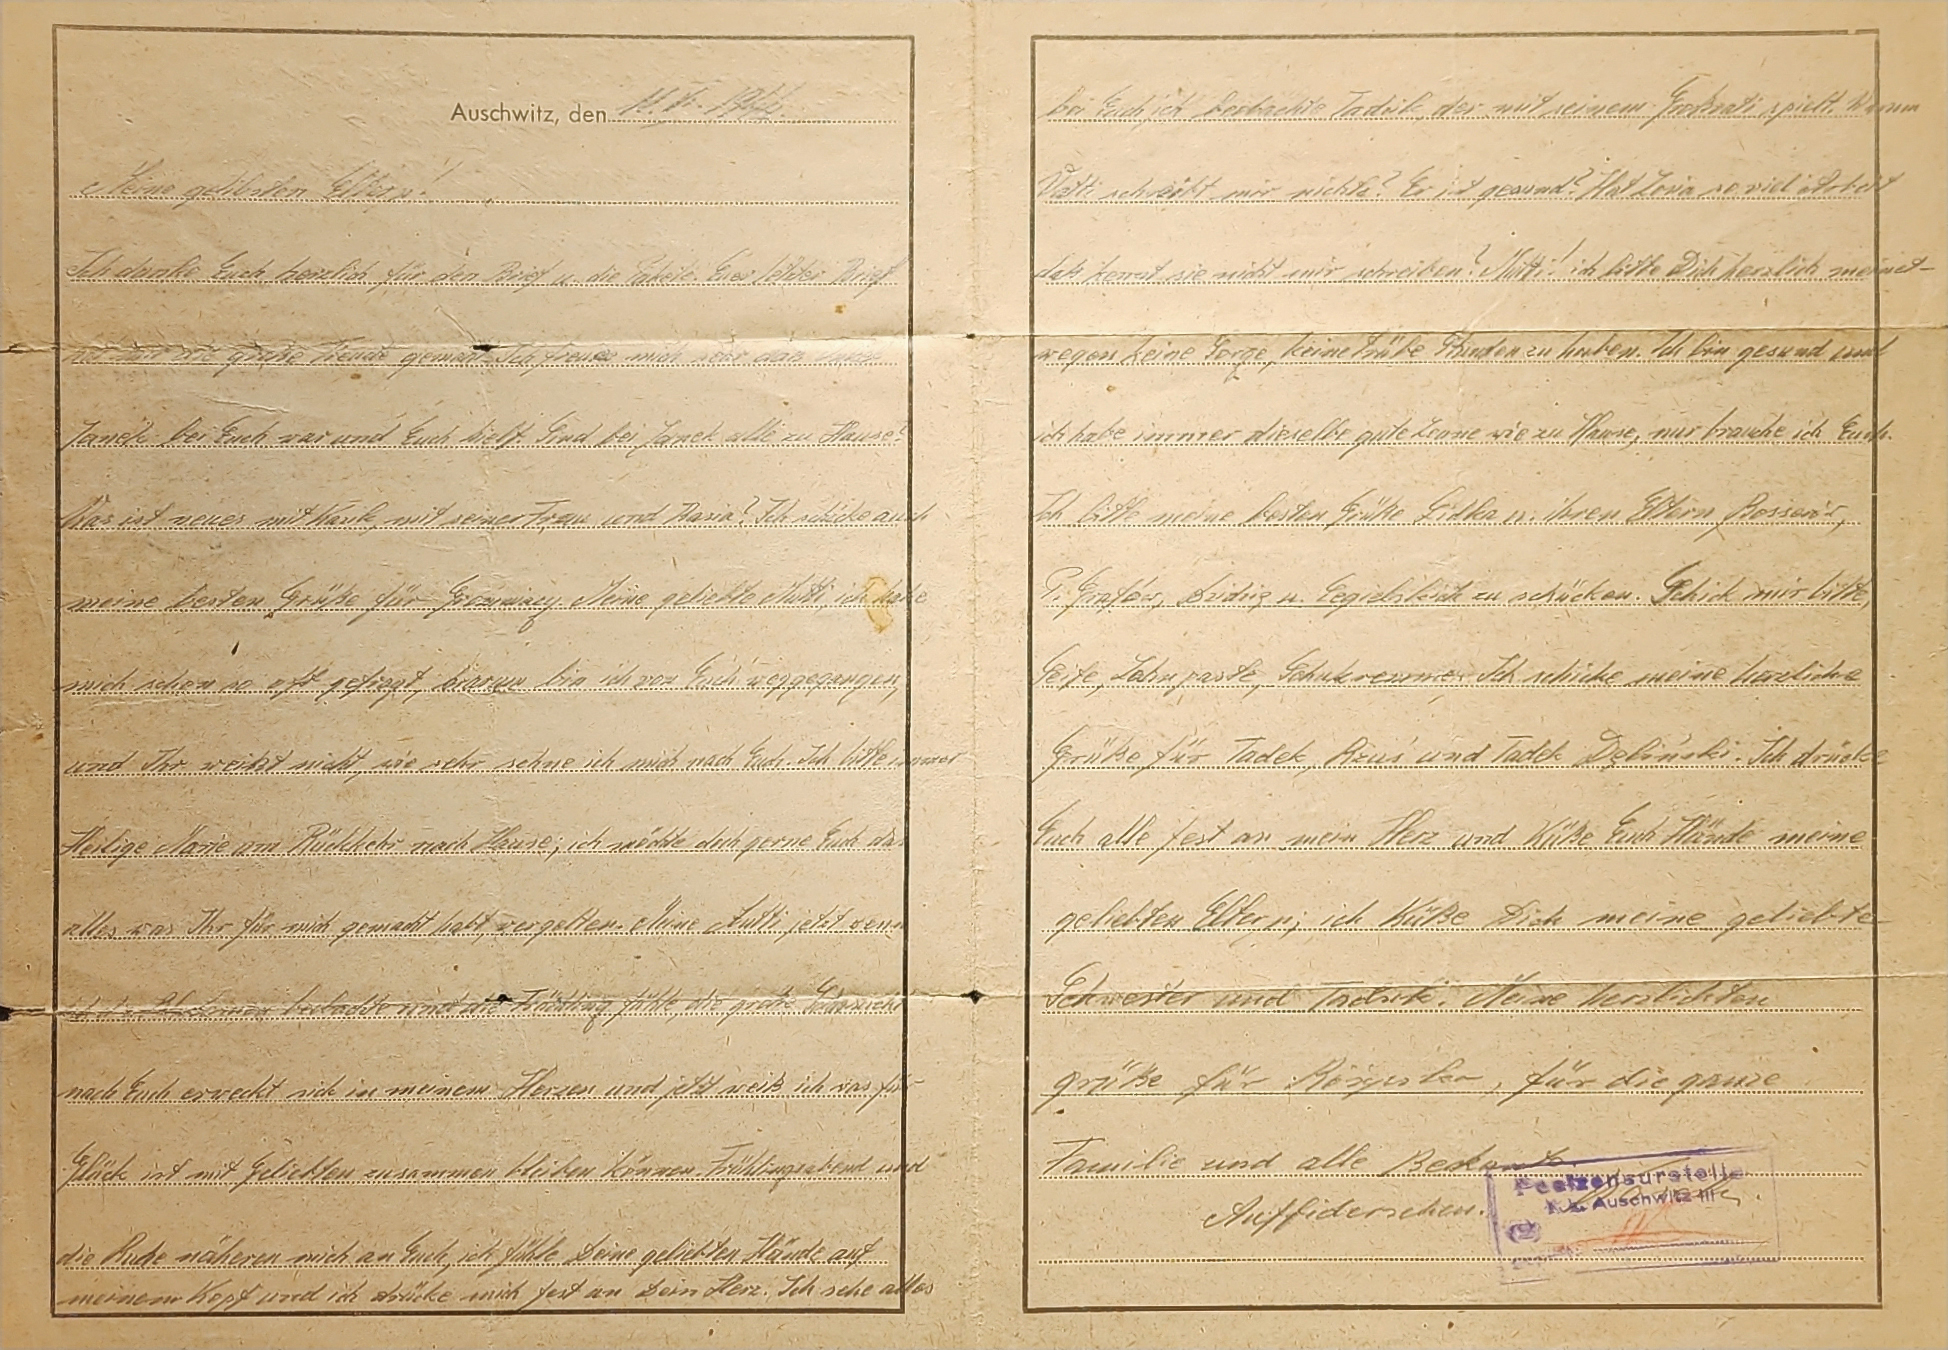 Auschwitz, den
Meine geliebsten Eltern!
Ich danke Euch herzlich für den Brief u. die Pakete. Euer letzter Brief
hat mir große Freude gemacht. Ich freue mich sehr das
Janek bei Euch war und Euch hielf. Sind bei Janek alle zu Hause?
Was ist neues mit mit seiner Frau und Basia? Ich schicke auch
meine besten Grüße für Meine geliebte Mutti, ich habe
mich schon so oft gefragt, warum bin ich von Euch weggegangen,
und Ihr weißt nicht, wie sehr sehne ich mich nach Euch. Ich bitte immer
Heilige Marie um Rückkehr nach Hause; ich möchte doch gerne Euch das
alles was Ihr für mich gemacht habt, vergelten. Meine Mutti jetzt wenn
ich die und die Frühling fühle, die große Sehnsucht
nach Euch erweckt sich in meinem Herzen und jetzt weiß ich was für
Glück ist mit Geliebten zusammen bleiben können. Frühlingsabend und
die Ruhe näheren mich an Euch, ich fühle Deine geliebten Hände auf
meinem Kopf und ich drücke mich fest an Dein Herz. Ich sehe alles
bei Euch, ich beobachte Tadzik, der mit seinem Großvati spielt. Warum
Vatti schreibt mir nichts? Er ist gesund? Hat Zosia so viel Arbeit
daß kennt sie nicht mir schreiben? Mutti! ich bitte Dich herzlich meinet-
wegen keine Sorge, keine trübe Stunden zu haben. Ich bin gesund und
ich habe immer dieselbe gute Laune wie zu Hause, nur brauche ich Euch.
Ich bitte meine besten Grüße Lidka u. ihren Eltern,
P. u. zu schücken. Schick mir bitte,
Seife, Zahnpaste, Ich schicke meine herzliche
Grüße für Tadek, und Tadek Dębiński. Ich drücke
Euch alle fest an mein Herz und Küße Euch Hände meine
geliebten Eltern; ich Küße Dich meine geliebte
Schwester und Tadzik. Meine herzlichten
grüße für, für die ganze
Familie und alle
Auffiedersehen.
Postzensurstelle
K. L. Auschwitz III